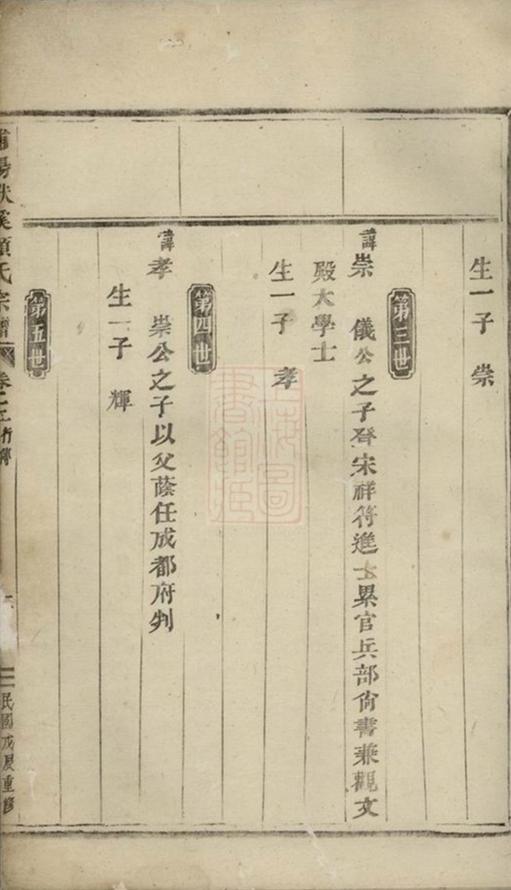 生一子 崇
第三世
諱崇 儀公之子登宋祥符進士累官兵部尙書兼觀文
殿大學士
生一子 孝
第四世
諱孝 崇公之子以父蔭任成都府判
生一子 輝
第五世
氏宗譜
民國戊辰重修
上海圖書館藏